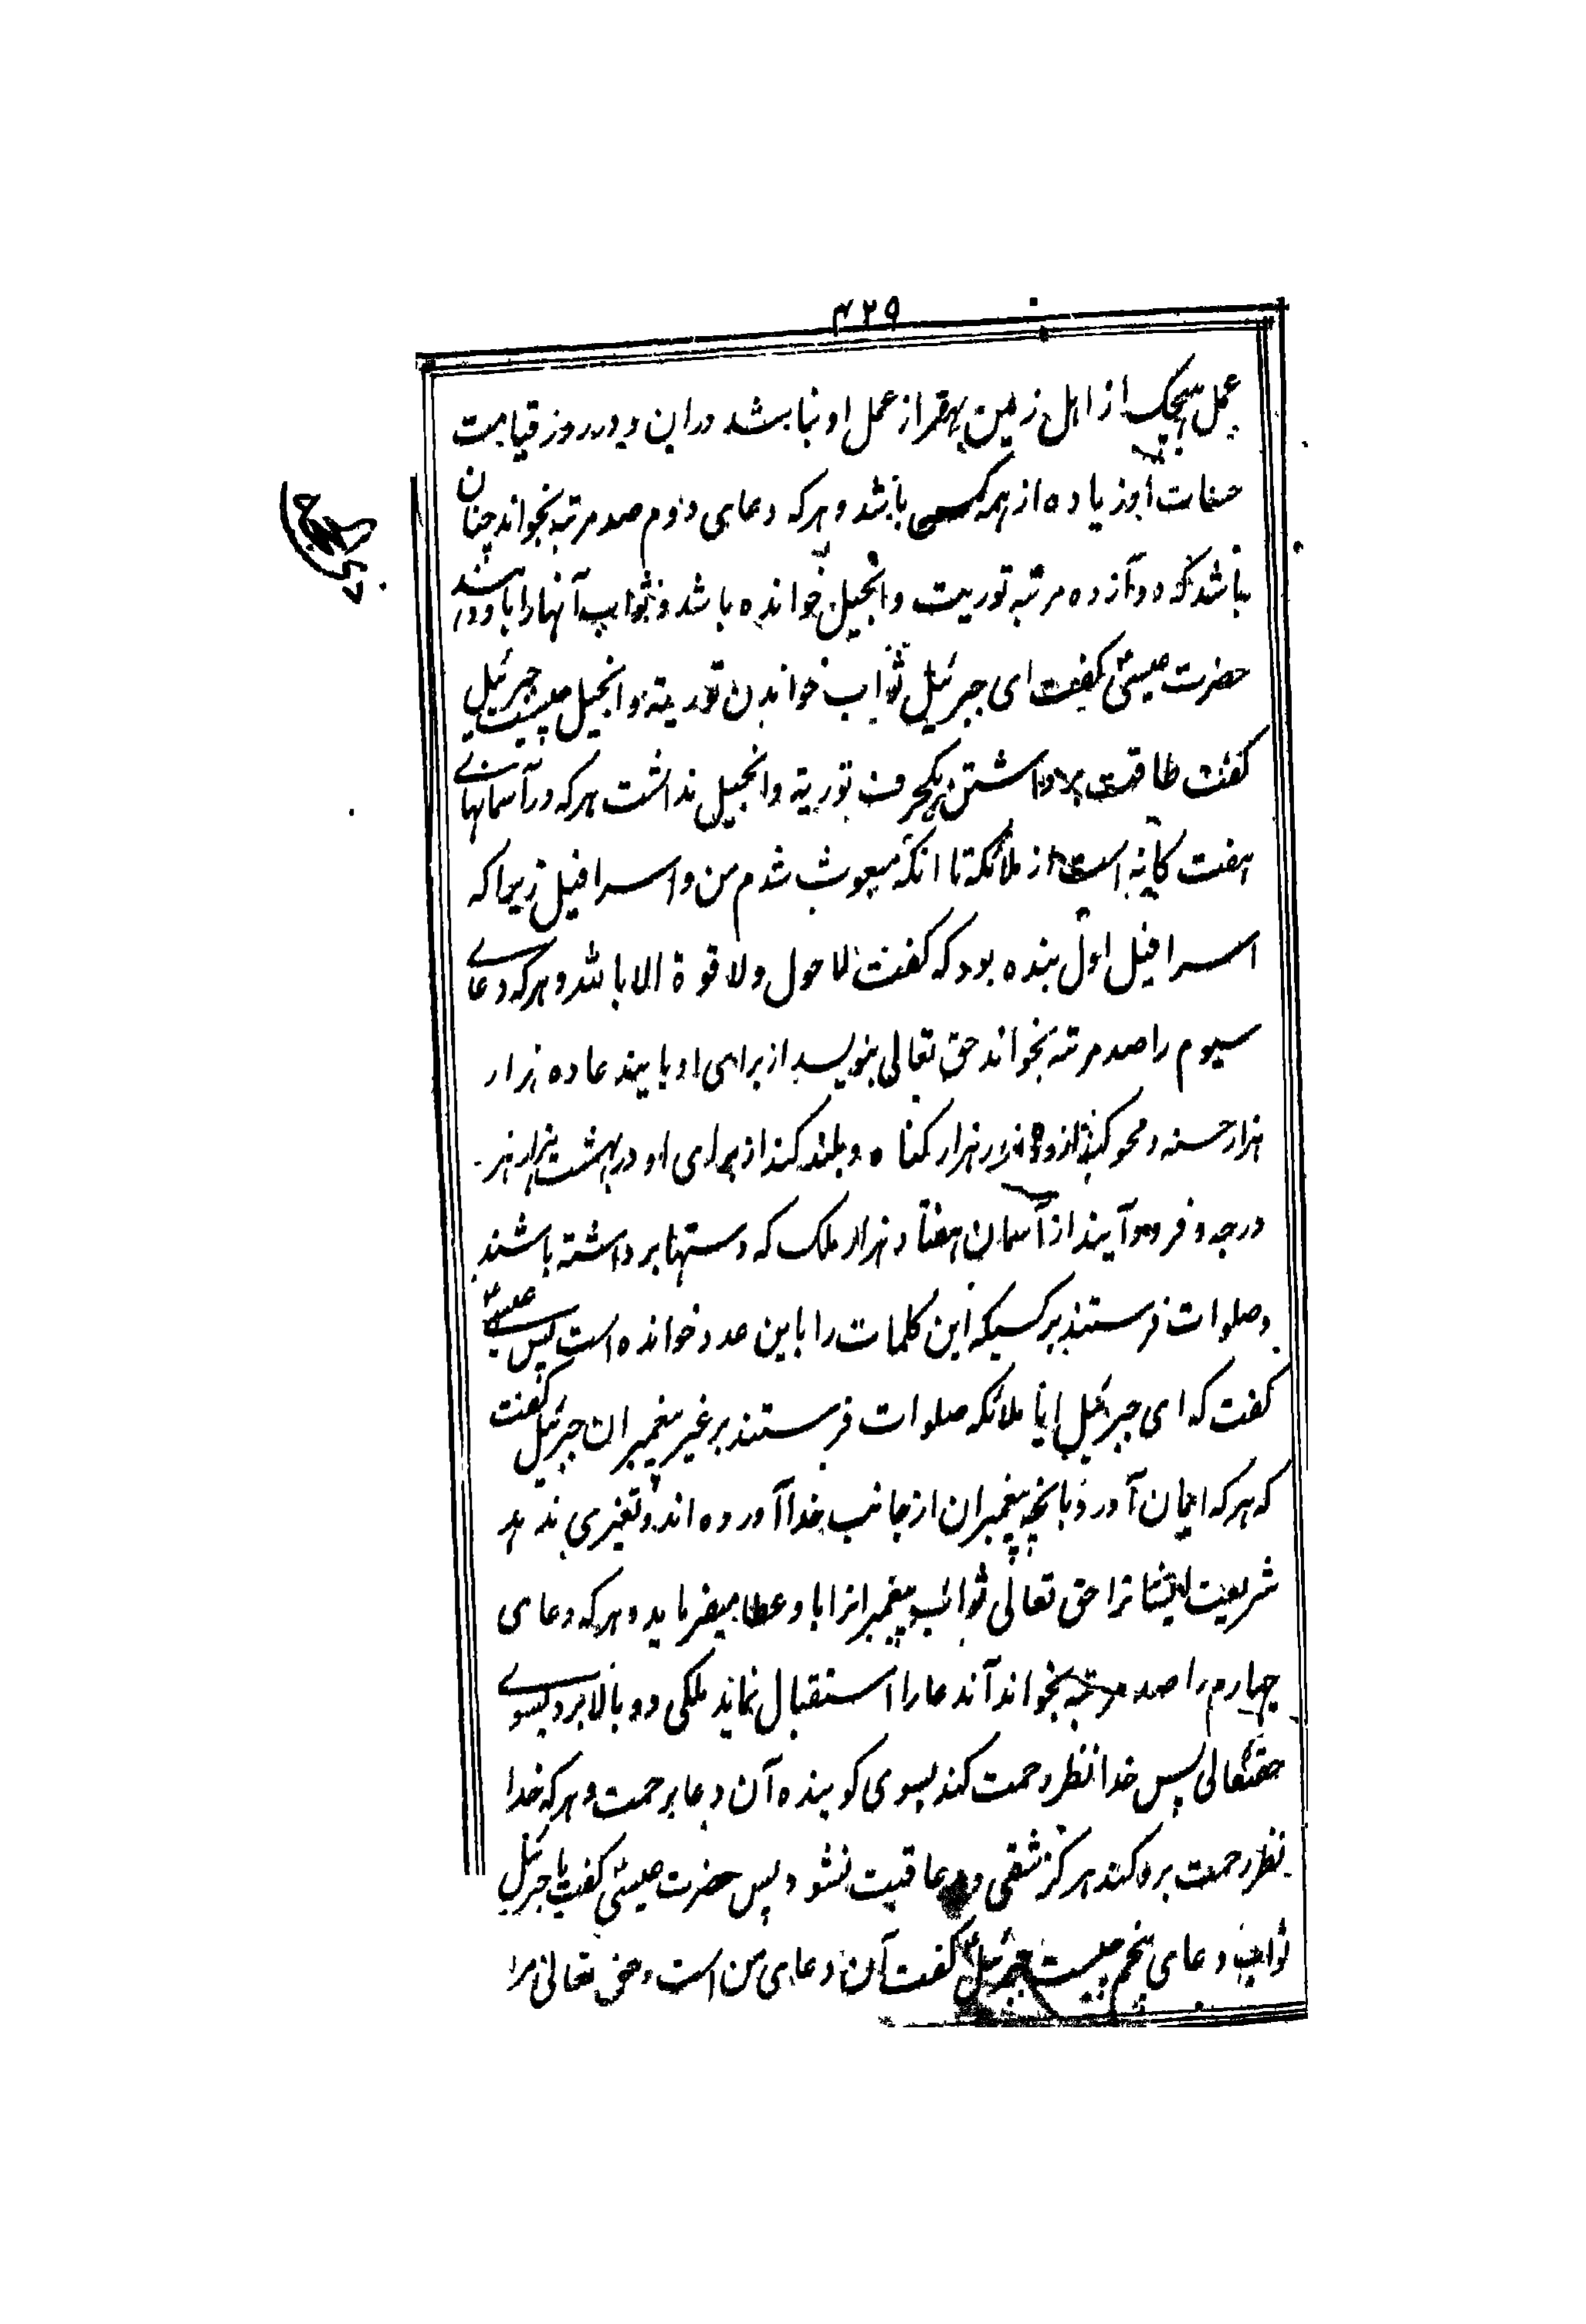 ۴۲۹
عمل هیچیک از اهل زمین بهتر از عمل او نباشد در این و در روز قیامت
حسنات او زیاده از همه کسی باشد و هر که دعای دوم صد مرتبه بخواند چنان
باشد که دوازده مرتبه توریت و انجیل خوانده باشد و ثواب آنها را باو دهند
حضرت عیسیؑ گفت ای جبرئیل ثواب خواندن توریة و انجیل چیست جبرئیل
گفت طاقت برداشتن یکحرف توریة و انجیل نداشت هر که در آسمانهای
هفت گانه است از ملائکه تا انکه مبعوث شدم من و اسرافیل زیرا که
اسرافیل اول بنده بود که گفت لا حول ولا قوة الا بالله و هر که دعای
سیوم را صد مرتبه بخواند حق تعالی بنویسد از برای او باین دعا ده هزار
هزار حسنه و محو کند از و هزار هزار گناه و بلند کند از برای او در بهشت هزار هزر
درجه و فرود آیند از آسمان هفتاد هزار ملک که دستها برداشته باشند
و صلوات فرستند بر کسیکه این کلمات را باین عدد خوانده است پس عیسیؑ
گفت که ای جبرئیل ایا ملائکه صلوات فرستند بر غیر پیغمبران جبرئیل گفت
که هر که ایمان آورد بانچه پیغمبران از جانب خدا آورده اند و تغیری ندهد
شریعت ایشانرا حق تعالی ثواب پیغمبرانرا باو عطا میفرماید و هر که دعای
چهارم را صد مرتبه بخواند آندعا را استقبال نماید ملکی و بالا برد بسوی
حقتعالی پس خدا نظر رحمت کند بسوی گوینده آن دعا برحمت و هر که خدا
نظر رحمت برو کند هرگز شقی و بدعاقبت نشود پس حضرت عیسیؑ گفت یا جبرئیل
ثواب دعای پنجم چیست جبرئیلؑ گفت آن دعای من است و حق تعالی مرا